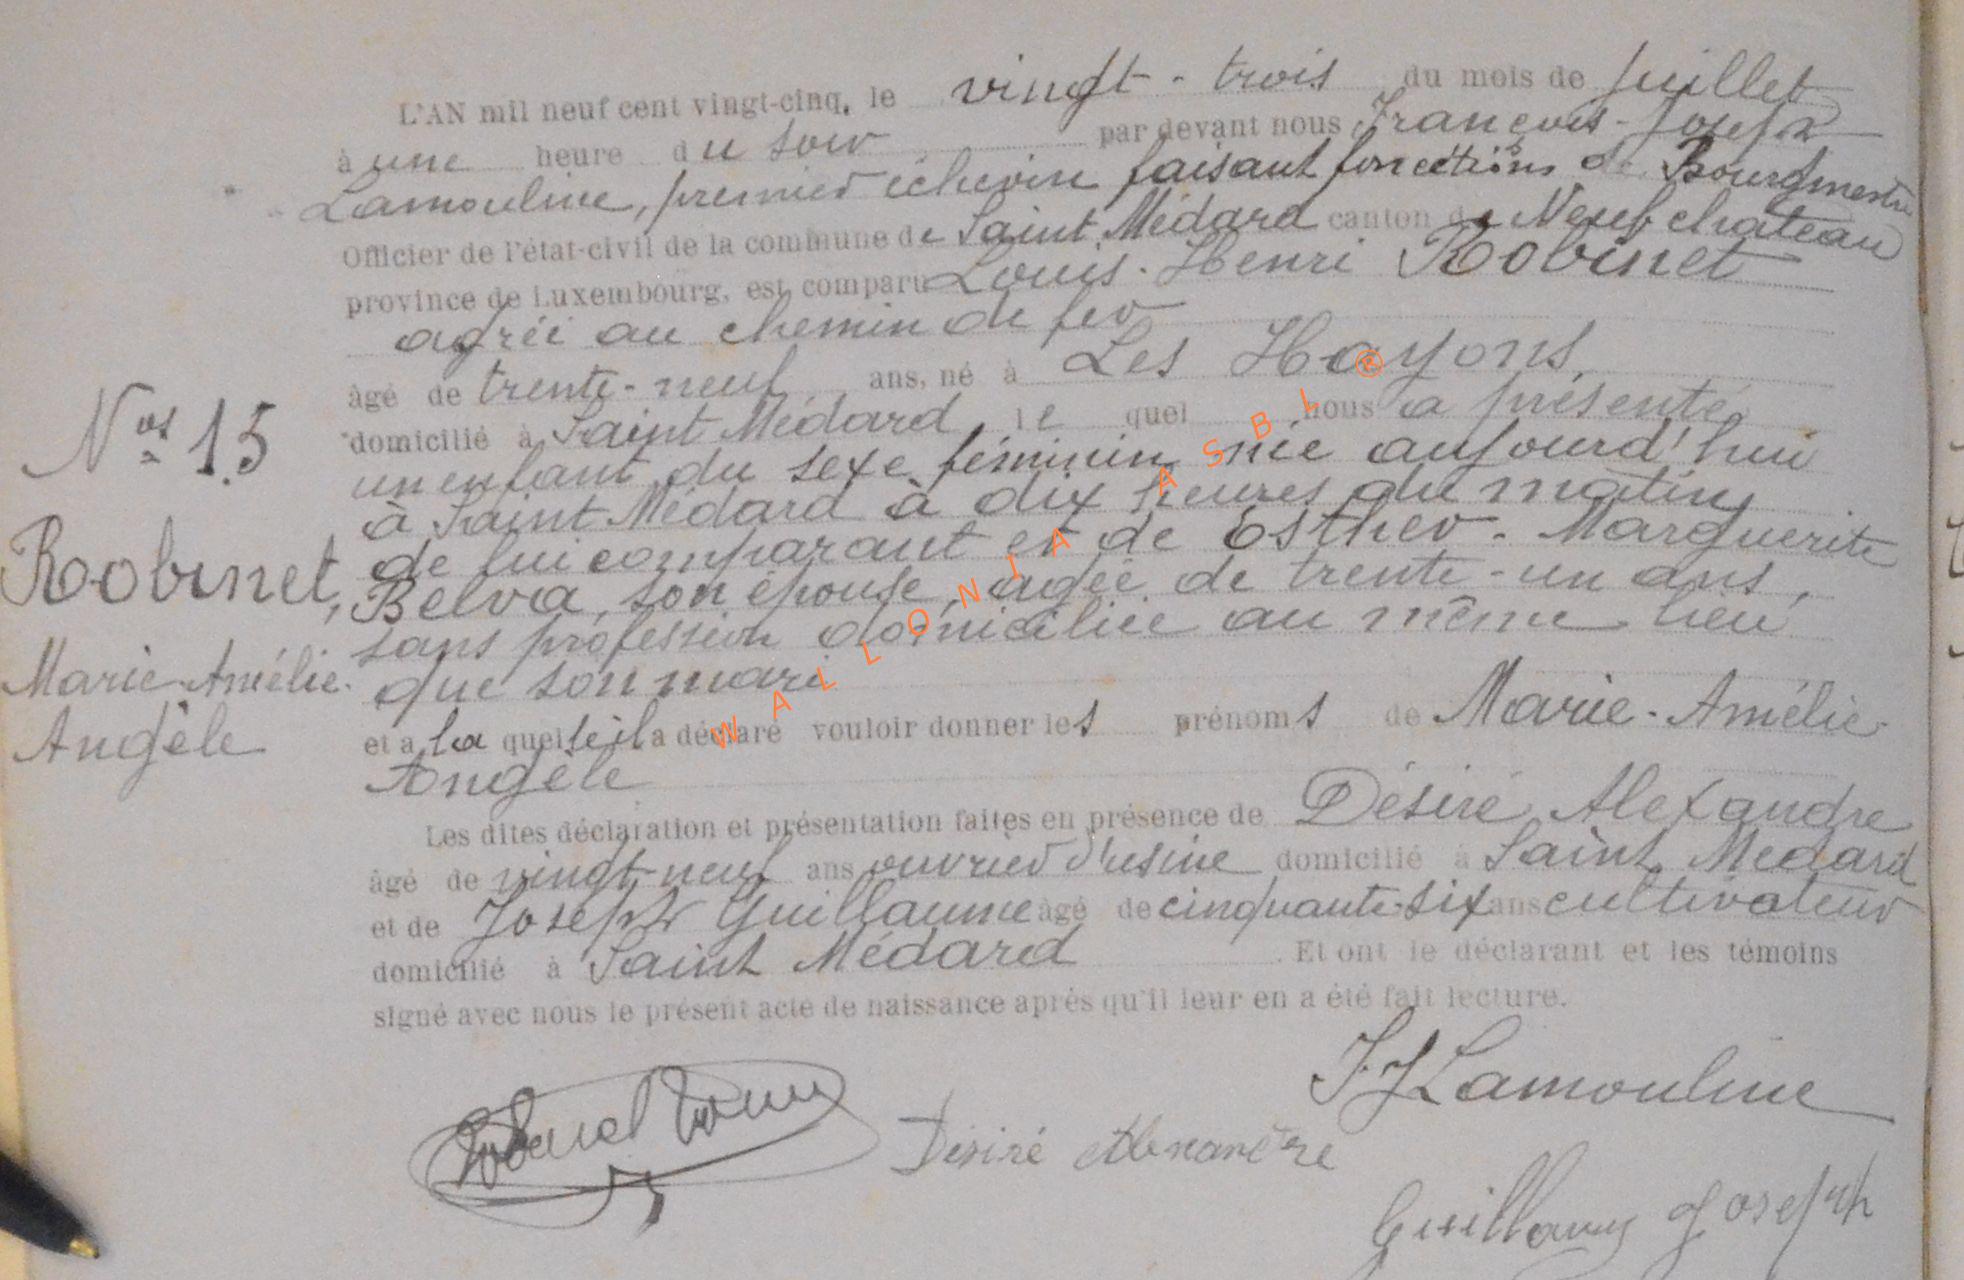 L'AN mil neuf cent vingt-cinq, le vingt-trois du mois de juillet
à une heure du soir par devant nous François-Joseph
Lamouline, premier échevin faisant fonctions de Bourgmestre
Officier de l'état-civil de la commune de Saint Médard canton de Neufchateau
province de Luxembourg, est comparu Louis-Henri Robinet
agréé au chemin de fer
âgé de trente-neuf ans, né à Les Hayons,
domicilié à Saint Médard, le quel nous a présenté
un enfant du sexe féminin née aujourd'hui
à Saint Médard à dix heures du matin,
de lui comparant et de Esther-Marguerite
Belva, son épouse, agée de trente-un ans,
sans profession domiciliée au même lieu
que son mari
et a la quelle il a déclaré vouloir donner les prénoms de Marie-Amélie-
Angèle
Les dites déclaration et présentation faites en présence de Désiré Alexandre
âgé de vingt-neuf ans ouvrier d'usine domicilié à Saint Médard
et de Joseph Guillaume âgé de cinquante-six ans cultivateur
domicilié à Saint Médard. Et ont le déclarant et les témoins
signé avec nous le présent acte de naissance après qu'il leur en a été fait lecture.
Nos 15
Robinet,
Marie-Amélie-
Angèle
F J Lamouline
Robinet Louis
Désiré Alexandre
Guillaume Joseph
WALLONIA ASBL ®